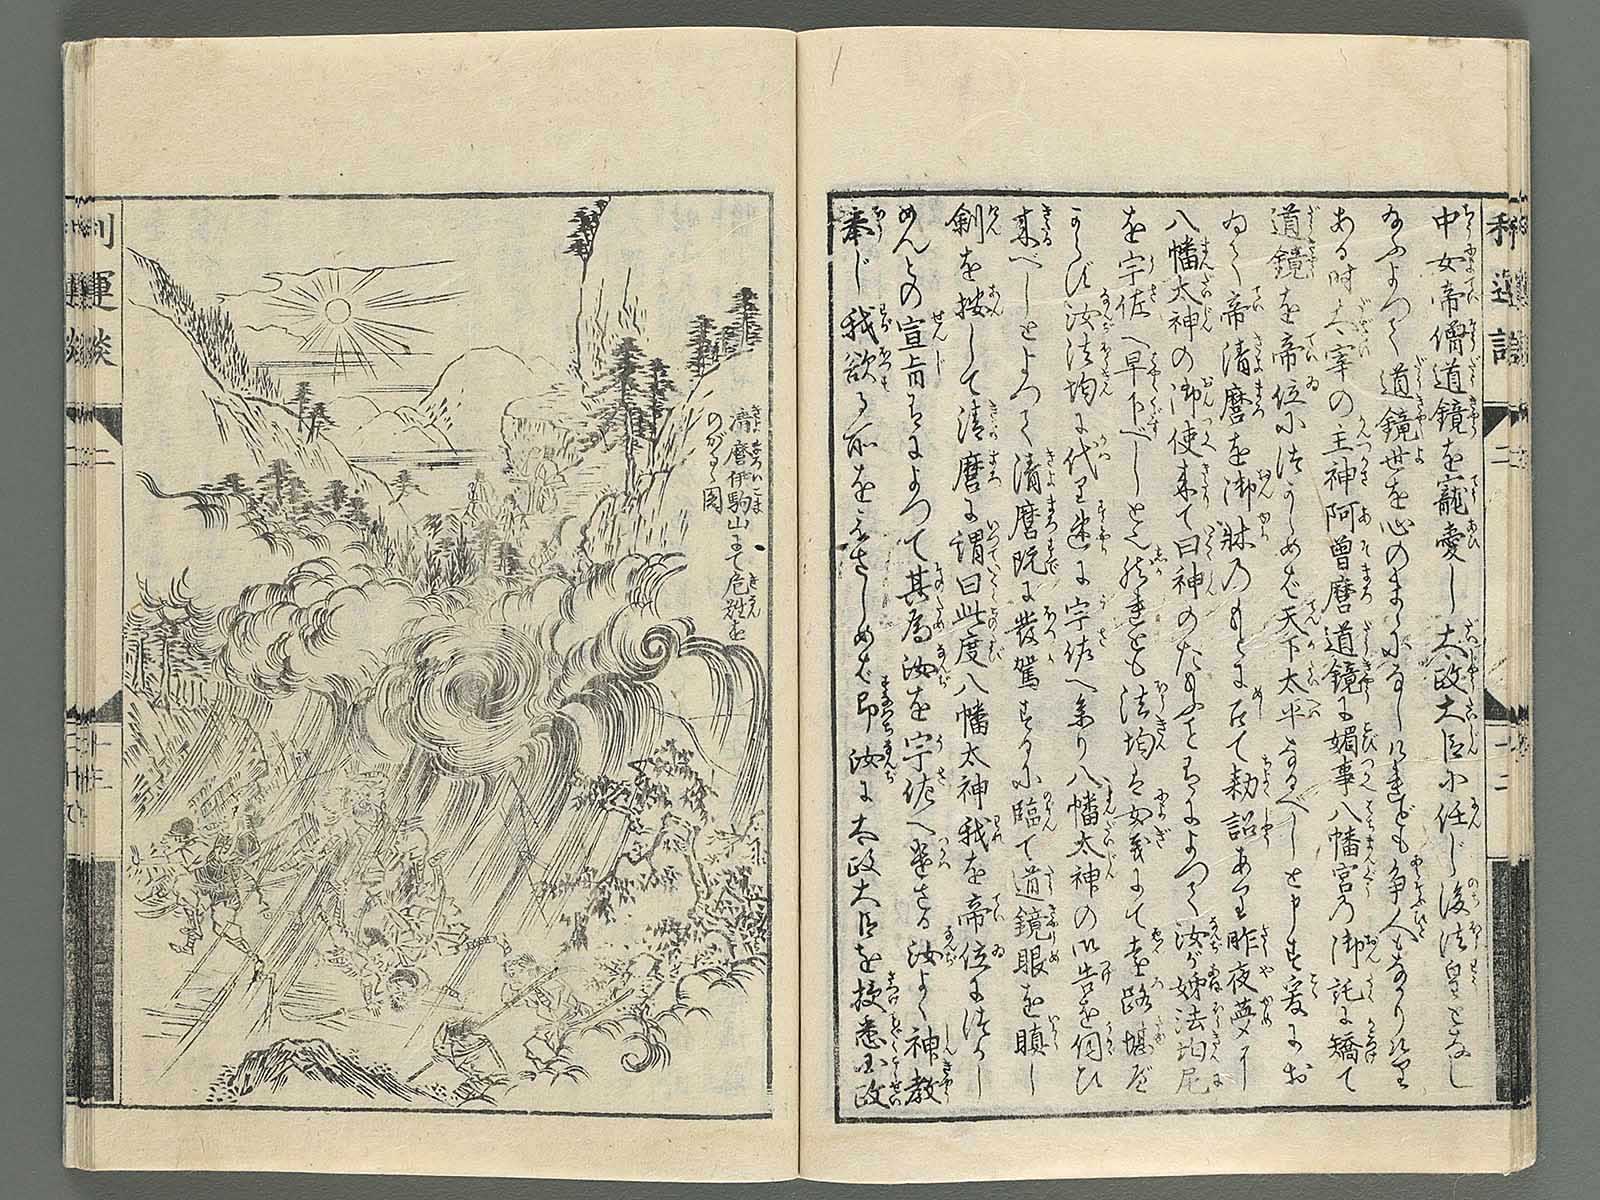 中女帝僧道鏡を寵愛し太政大臣に任じ後法皇となし
給ふよつて道鏡世を心のまゝになしけれども争人もなかりけり
ある時太宰の主神阿曽麿道鏡に媚事八幡宮の御託に矯て
道鏡を帝位につかしめば天下太平なるべしと申す爰にお
ゐて帝清麿を御牀のもとに召て勅詔あり昨夜夢に
八幡太神の御使来て曰神のたまふことあるによつて汝が姉法均尼
を宇佐へ早下べしと然れども法均は女義にて遠路堪が
たし汝法均に代り速に宇佐へ参り八幡太神の御告を伺ひ
来べしとよつて清麿既に發駕するに臨て道鏡眼を瞋し
劍を按して清麿に謂曰此度八幡太神我を帝位につかし
めんとの宣旨あるによつて其為汝を宇佐へ遣さる汝よく神教
奉じ我欲る所をとさしめば即汝に太政大臣を授悉国政
清麿伊駒山にて危難を
のがるゝ図
利運談
二